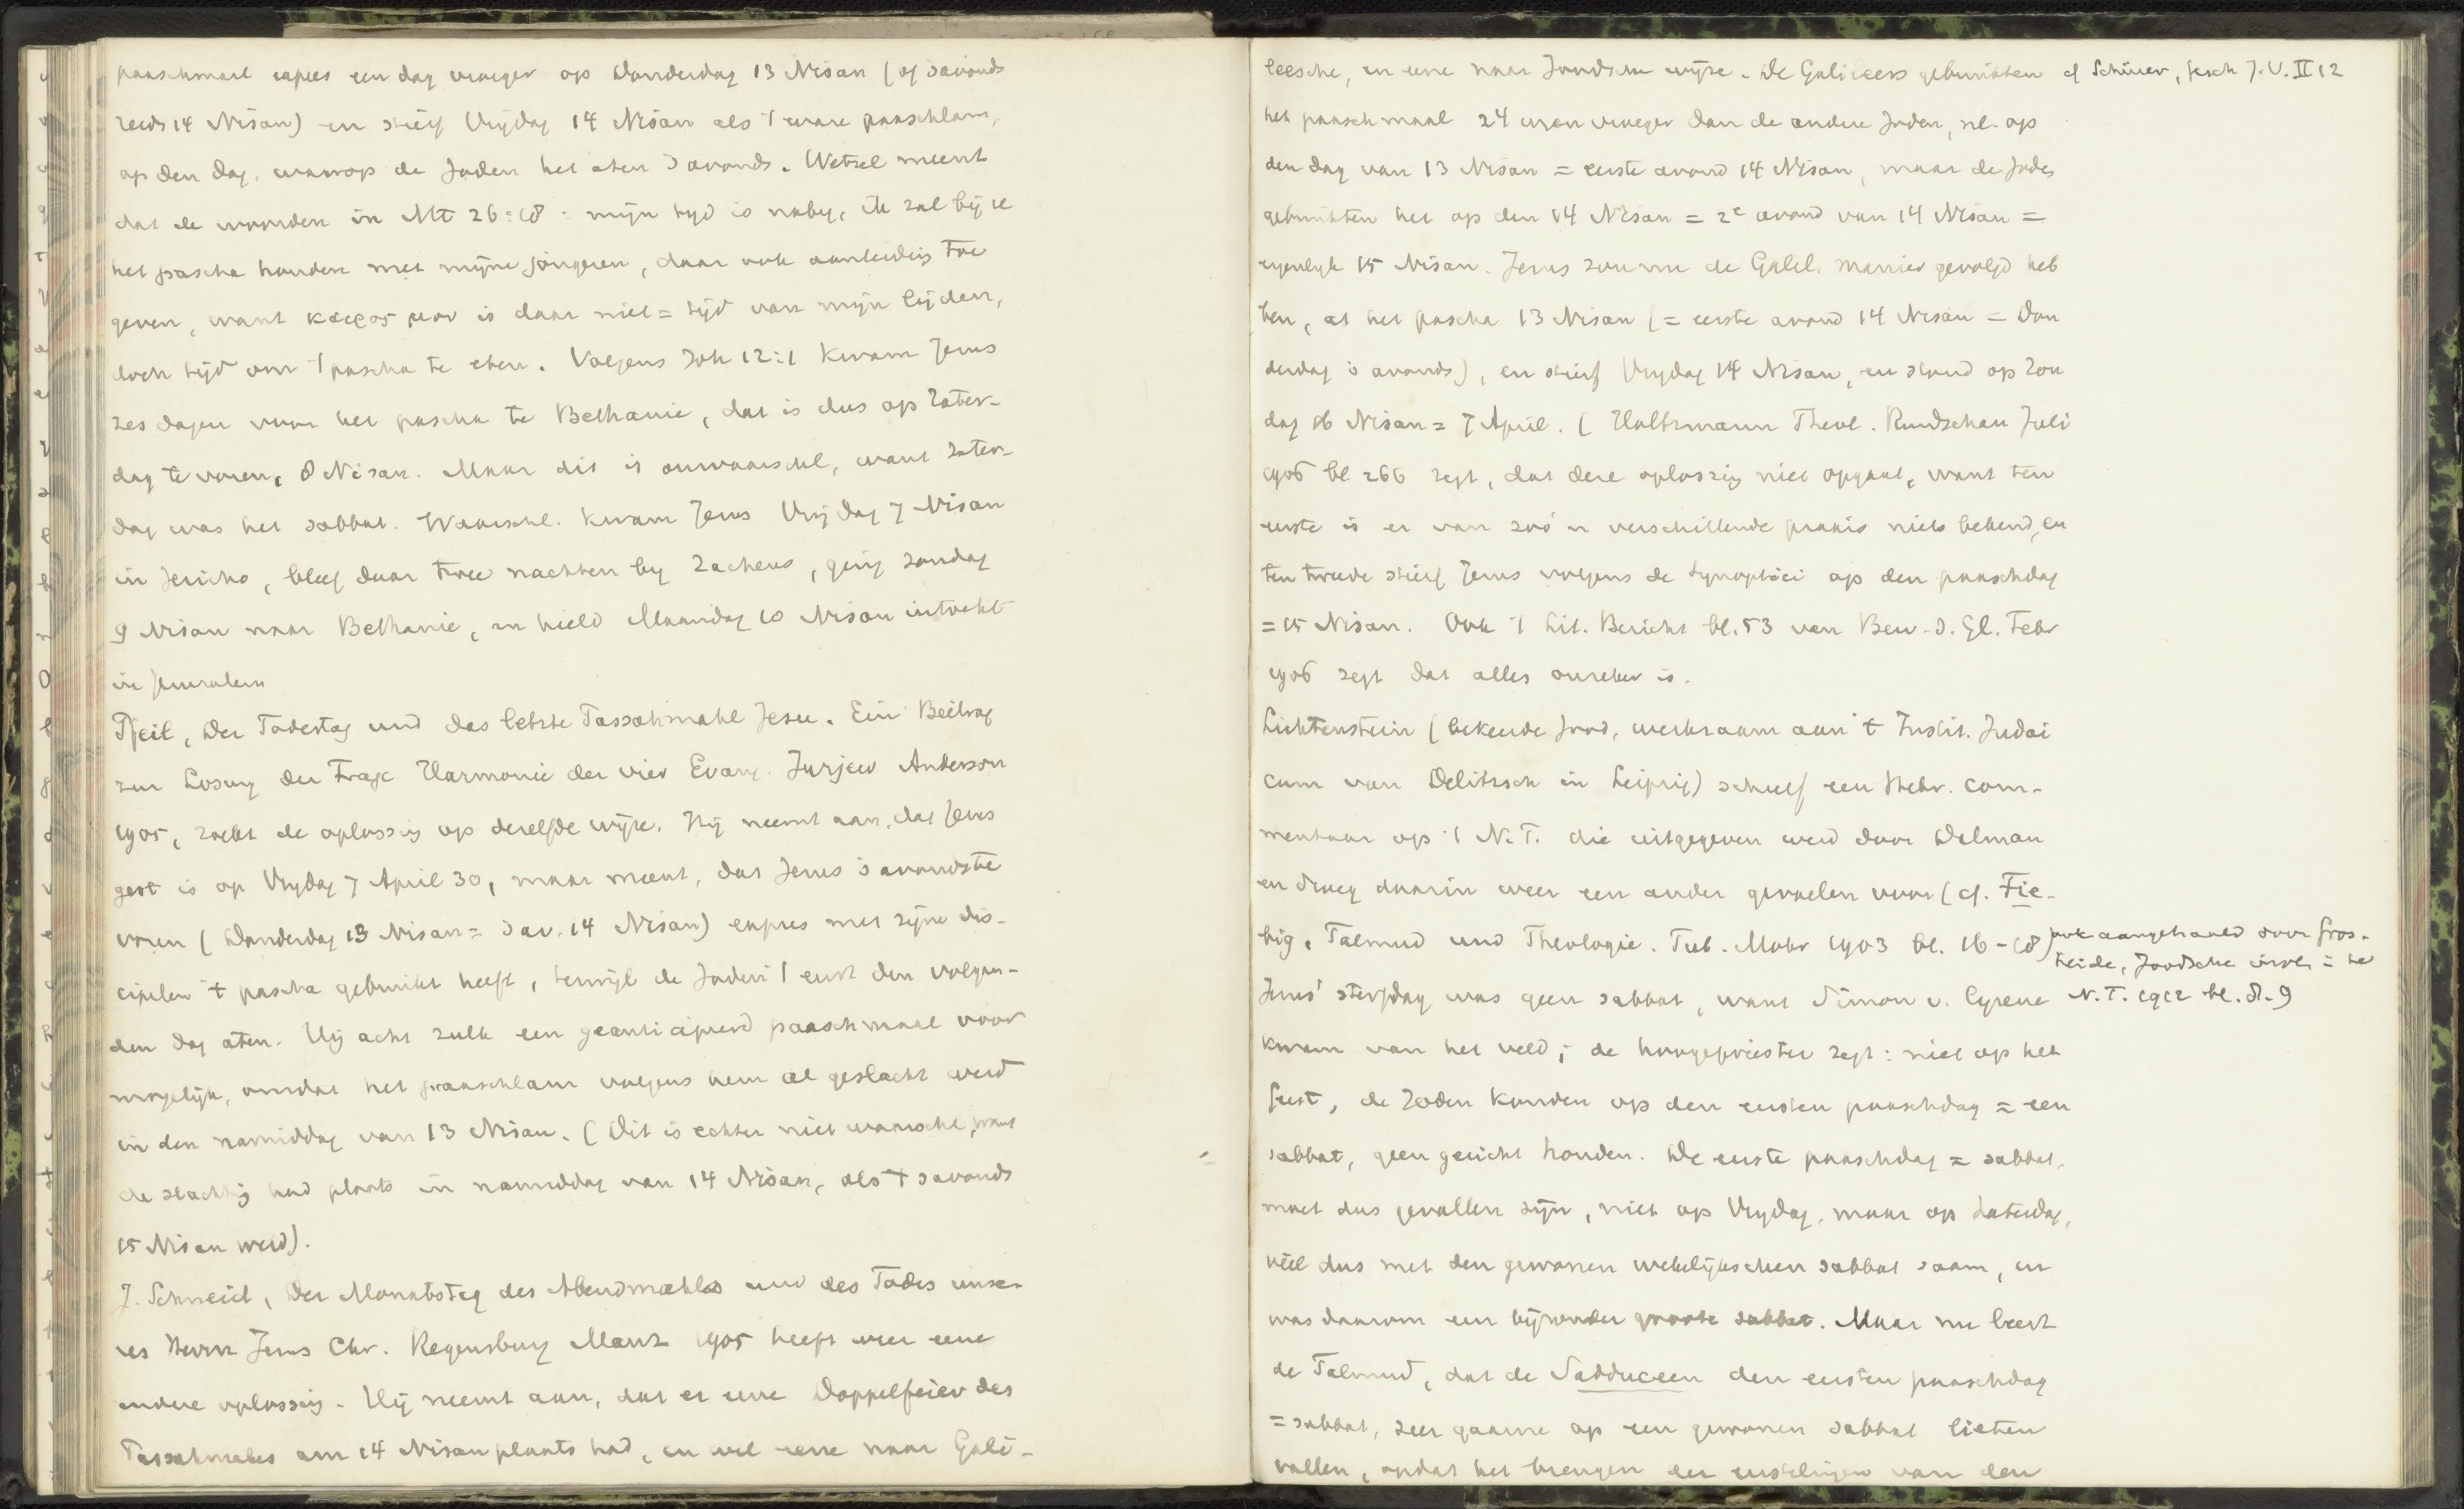 paaschmaal expres een dag vroeger op Donderdag 13 Nisan (of 's avonds
reeds 14 Nisan) en stierf Vrijdag 14 Nisan als 't ware paaschlam,
op den dag, waarop de Joden het aten 's avonds. Wetzel meent
dat de woorden in Mt 26:18: mijn tijd is nabij, ik zal bij u
het pascha houden met mijne jongeren, daar ook aanleiding toe
geven, want καιρος μου is daar niet = tijd van mijn lijden,
doch tijd om 't pascha te eten. Volgens Joh 12:1 kwam Jezus
zes dagen voor het pascha te Bethanie, dat is dus op Zater-
dag te voren, 8 Nisan. Maar dit is onwaarschl, want Zater-
dag was het sabbat. Waarschl. kwam Jezus Vrijdag 7 Nisan
in Jericho, bleef daar twee nachten by Zacheus, ging zondag
9 Nisan naar Bethanie, en hield Maandag 10 Nisan intocht
in Jeruzalem
Pfeil, Der Todestag und das letzte Passahmahl Jesu. Ein Beitrag
zur Losung der Frage Harmonie der vier Evang. Jurjew Anderson
1905, zoekt de oplossing op dezelfde wijze. Hij neemt aan, dat Jezus
gest is op Vrydag 7 April 30, maar meent, dat Jezus 's avonds te
voren (Donderdag 13 Nisan = 's av. 14 Nisan) expres met zijne dis-
cipelen 't pascha gebruikt heeft, terwijl de Joden 't eerst den volgen-
den dag aten. Hij acht zulk een geanticipeerd paaschmaal voor
mogelijk, omdat het paaschlam volgens hem al geslacht werd
in den namiddag van 13 Nisan. (Dit is echter niet waarschl, want
de slachting had plaats in namiddag van 14 Nisan, als 't 's avonds
15 Nisan werd).
J. Schneid, Der Monatstag des Abendmahls und des Todes unse-
res Herrn Jesus Chr. Regensburg Manz 1905 heeft weer eene
andere oplossing. Hij neemt aan, dat er eene Doppelfeier des
Passahmahles am 14 Nisan plaats had, en wel eene naar Gali-
leesche, en eene naar Joodsche wijze. De Galileers gebruikten cf Schürer, Gesch J.V. II 12
het paaschmaal 24 uren vroeger dan de andere Joden, nl. op
den dag van 13 Nisan = eerste avond 14 Nisan, maar de Joden
gebruikten het op den 14 Nisan = 2e avond van 14 Nisan =
eigenlyk 15 Nisan. Jezus zou nu de Galil. manier gevolgd heb
ben, at het pascha 13 Nisan (= eerste avond 14 Nisan = Don
derdag 's avonds), en stierf Vrydag 14 Nisan, en stond op Zon
dag 16 Nisan = 7 April. (Holtzmann Theol. Rundschau Juli
1906 bl 266 zegt, dat deze oplossing niet opgaat, want ten
eerste is er van zoo'n verschillende praxis niets bekend, en
ten tweede stierf Jezus volgens de Synoptici op den paaschdag
= 15 Nisan. Ook 't Lit. Bericht bl. 53 van Bew. d. Gl. Febr
1906 zegt dat alles onzeker is.
Lichtenstein (bekeerde Jood, werkzaam aan 't Instit. Judai
cum van Delitzsch in Leipzig) schreef een Hebr. com-
mentaar op 't N.T. die uitgegeven werd door Dalman
en droeg daarin weer een ander gevoelen voor (cf. Fie-
big, Talmud und Theologie. Tub. Mohr 1903 bl. 16-18) ook aangehaald door Gros-
heide, Joodsche
Jezus' sterfdag was geen sabbat, want Simon v. Cyrene N.T. 1912 bl. 8-9
kwam van het veld; de hoogepriester zegt: niet op het
feest, de Joden konden op den eersten paaschdag = een
sabbat, geen gericht houden. De eerste paaschdag = sabbat,
moet dus gevallen zijn, niet op Vrydag, maar op Saterdag,
viel dus met den gewonen wekelijkschen sabbat saam, en
was daarom een bijzonder groote sabbat. Maar nu leert
de Talmud, dat de Sadduceen den eersten paaschdag
= sabbat, zeer gaarne op een gewonen sabbat lieten
vallen, opdat het brengen der eerstelingen van den